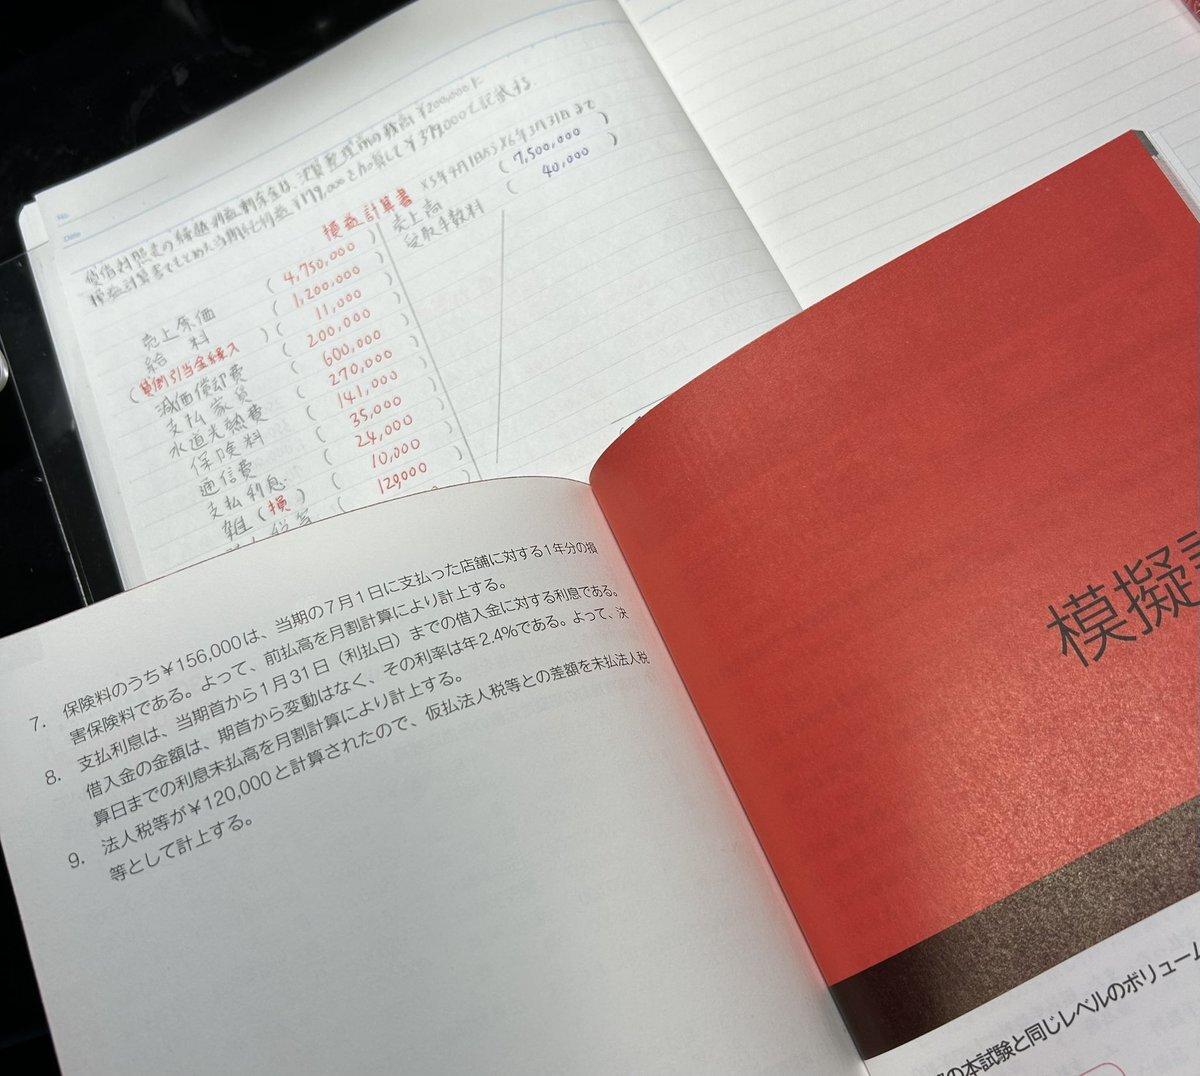 No.
Date
貸借対照表の繰越利益剰余金は、決算整理前の残高¥200,000に
損益計算書でもとめた当期純利益¥179,000を加算して¥379,000と記載する.
損益計算書 X5年4月1日から X6年3月31日まで
売上原価 ( 4,750,000 ) 売上高 ( 7,500,000 )
給料 ( 1,200,000 ) 受取手数料 ( 40,000 )
(貸倒引当金繰入) ( 11,000 )
減価償却費 ( 200,000 )
支払家賃 ( 600,000 )
水道光熱費 ( 270,000 )
保険料 ( 141,000 )
通信費 ( 35,000 )
支払利息 ( 24,000 )
雑(損) ( 10,000 )
税等 ( 120,000
7. 保険料のうち¥156,000は、当期の7月1日に支払った店舗に対する1年分の損
害保険料である。よって、前払高を月割計算により計上する。
8. 支払利息は、当期首から1月31日(利払日)までの借入金に対する利息である。
借入金の金額は、期首から変動はなく、その利率は年2.4%である。よって、決
算日までの利息未払高を月割計算により計上する。
9. 法人税等が¥120,000と計算されたので、仮払法人税等との差額を未払法人税
等として計上する。
模擬
の本試験と同じレベルのボリューム